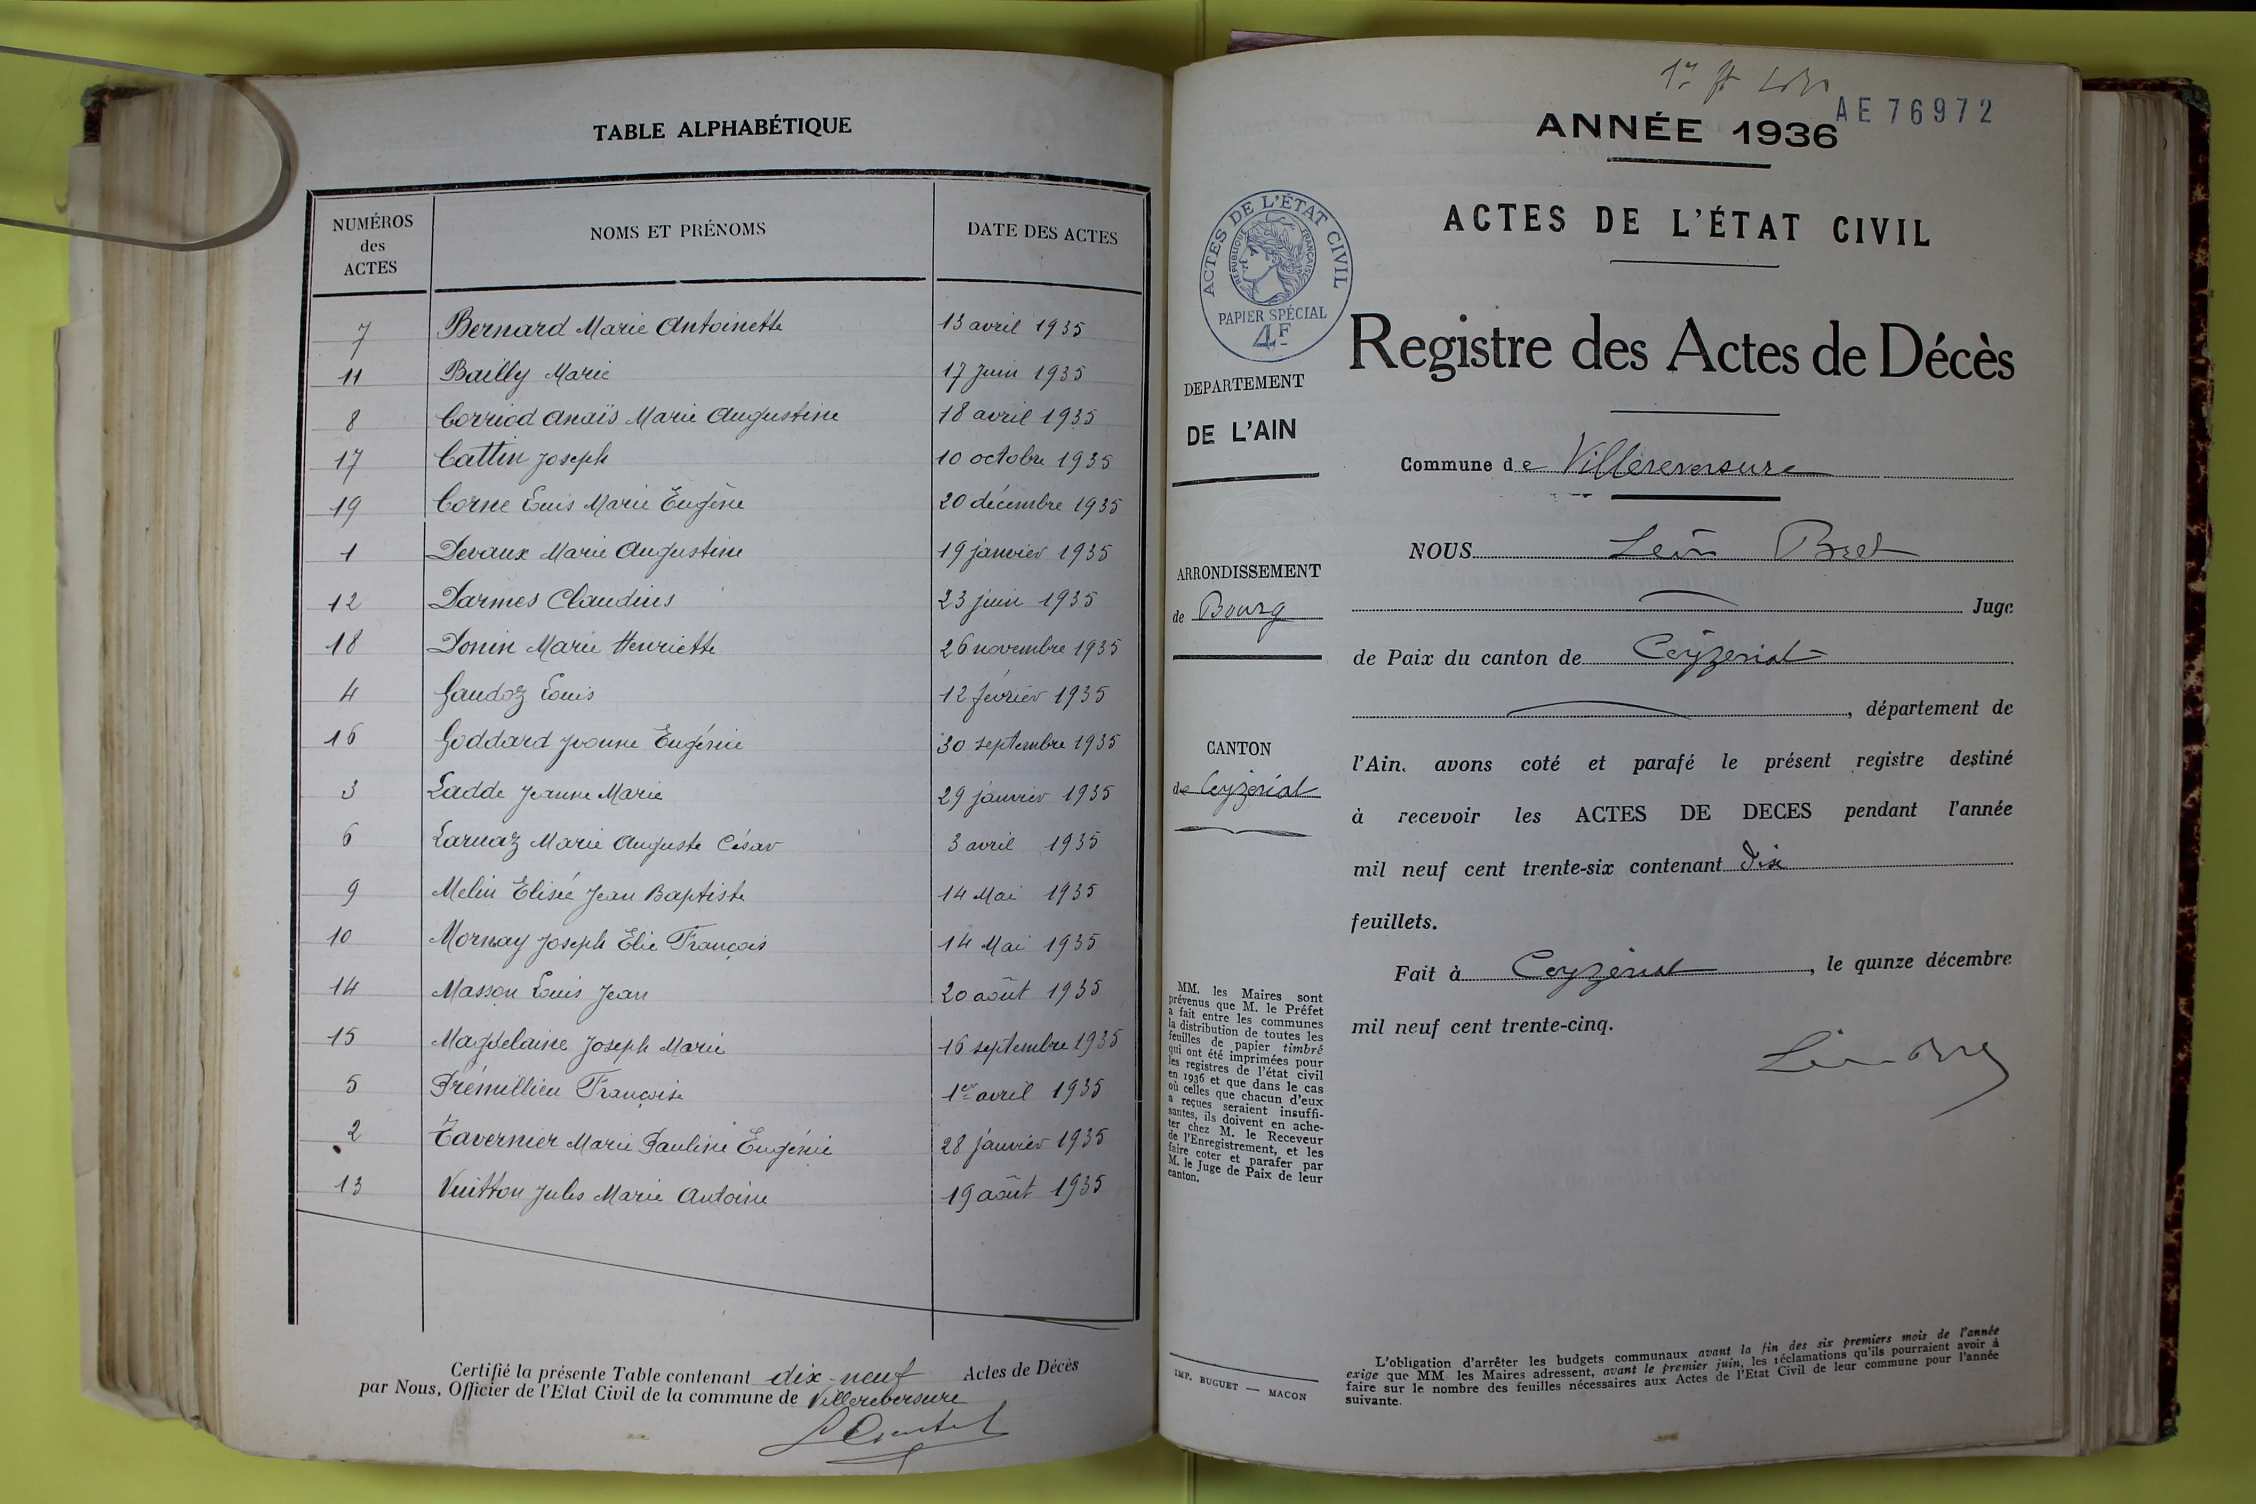 TABLE ALPHABÉTIQUE
NUMÉROS
des
ACTES
NOMS ET PRÉNOMS
DATE DES ACTES
7 Bernard Marie Antoinette 13 avril 1935
11 Bailly Marie 17 juin 1935
8 Corriod Anaïs Marie Augustine 18 avril 1935
17 Cattin Joseph 10 octobre 1935
19 Corne Louis Marie Eugène 20 décembre 1935
1 Devaux Marie Augustine 19 janvier 1935
12 Darmes Claudius 23 juin 1935
18 Donin Marie Henriette 26 novembre 1935
4 Gaudoz Louis 12 février 1935
16 Goddard Yvonne Eugénie 30 septembre 1935
3 Ladde Jeanne Marie 29 janvier 1935
6 Larnaz Marie Auguste César 3 avril 1935
9 Melin Elisée Jean Baptiste 14 Mai 1935
10 Mornay Joseph Elie François 14 Mai 1935
14 Masson Louis Jean 20 août 1935
15 Magdelaine Joseph Marie 16 septembre 1935
5 Prémillieu Françoise 1er avril 1935
2 Tavernier Marie Pauline Eugénie 28 janvier 1935
13 Vuitton Jules Marie Antoine 19 août 1935
Certifié la présente Table contenant dix-neuf Actes de Décès
par Nous, Officier de l'Etat Civil de la commune de Villereversure
AE 76972
ANNÉE 1936
ACTES DE L'ÉTAT CIVIL
ACTES DE L'ÉTAT CIVIL
RÉPUBLIQUE FRANÇAISE
PAPIER SPÉCIAL
4F
Registre des Actes de Décès
DEPARTEMENT
DE L'AIN
ARRONDISSEMENT
de Bourg
CANTON
de Ceyzériat
MM. les Maires sont
prévenus que M. le Préfet
a fait entre les communes
la distribution de toutes les
feuilles de papier timbré
qui ont été imprimées pour
les registres de l'état civil
en 1936 et que dans le cas
où celles que chacun d'eux
a reçues seraient insuffi-
santes, ils doivent en ache-
ter chez M. le Receveur
de l'Enregistrement, et les
faire coter et parafer par
M. le Juge de Paix de leur
canton.
IMP. BUGUET — MACON
Commune de Villereversure
NOUS Léon Bret
Juge
de Paix du canton de Ceyzeriat
, département de
l'Ain, avons coté et parafé le présent registre destiné
à recevoir les ACTES DE DECES pendant l'année
mil neuf cent trente-six contenant dix
feuillets.
Fait à Ceyzériat, le quinze décembre
mil neuf cent trente-cinq.
L'obligation d'arrêter les budgets communaux avant la fin des six premiers mois de l'année
exige que MM. les Maires adressent, avant le premier juin, les réclamations qu'ils pourraient avoir à
faire sur le nombre des feuilles nécessaires aux Actes de l'Etat Civil de leur commune pour l'année
suivante.